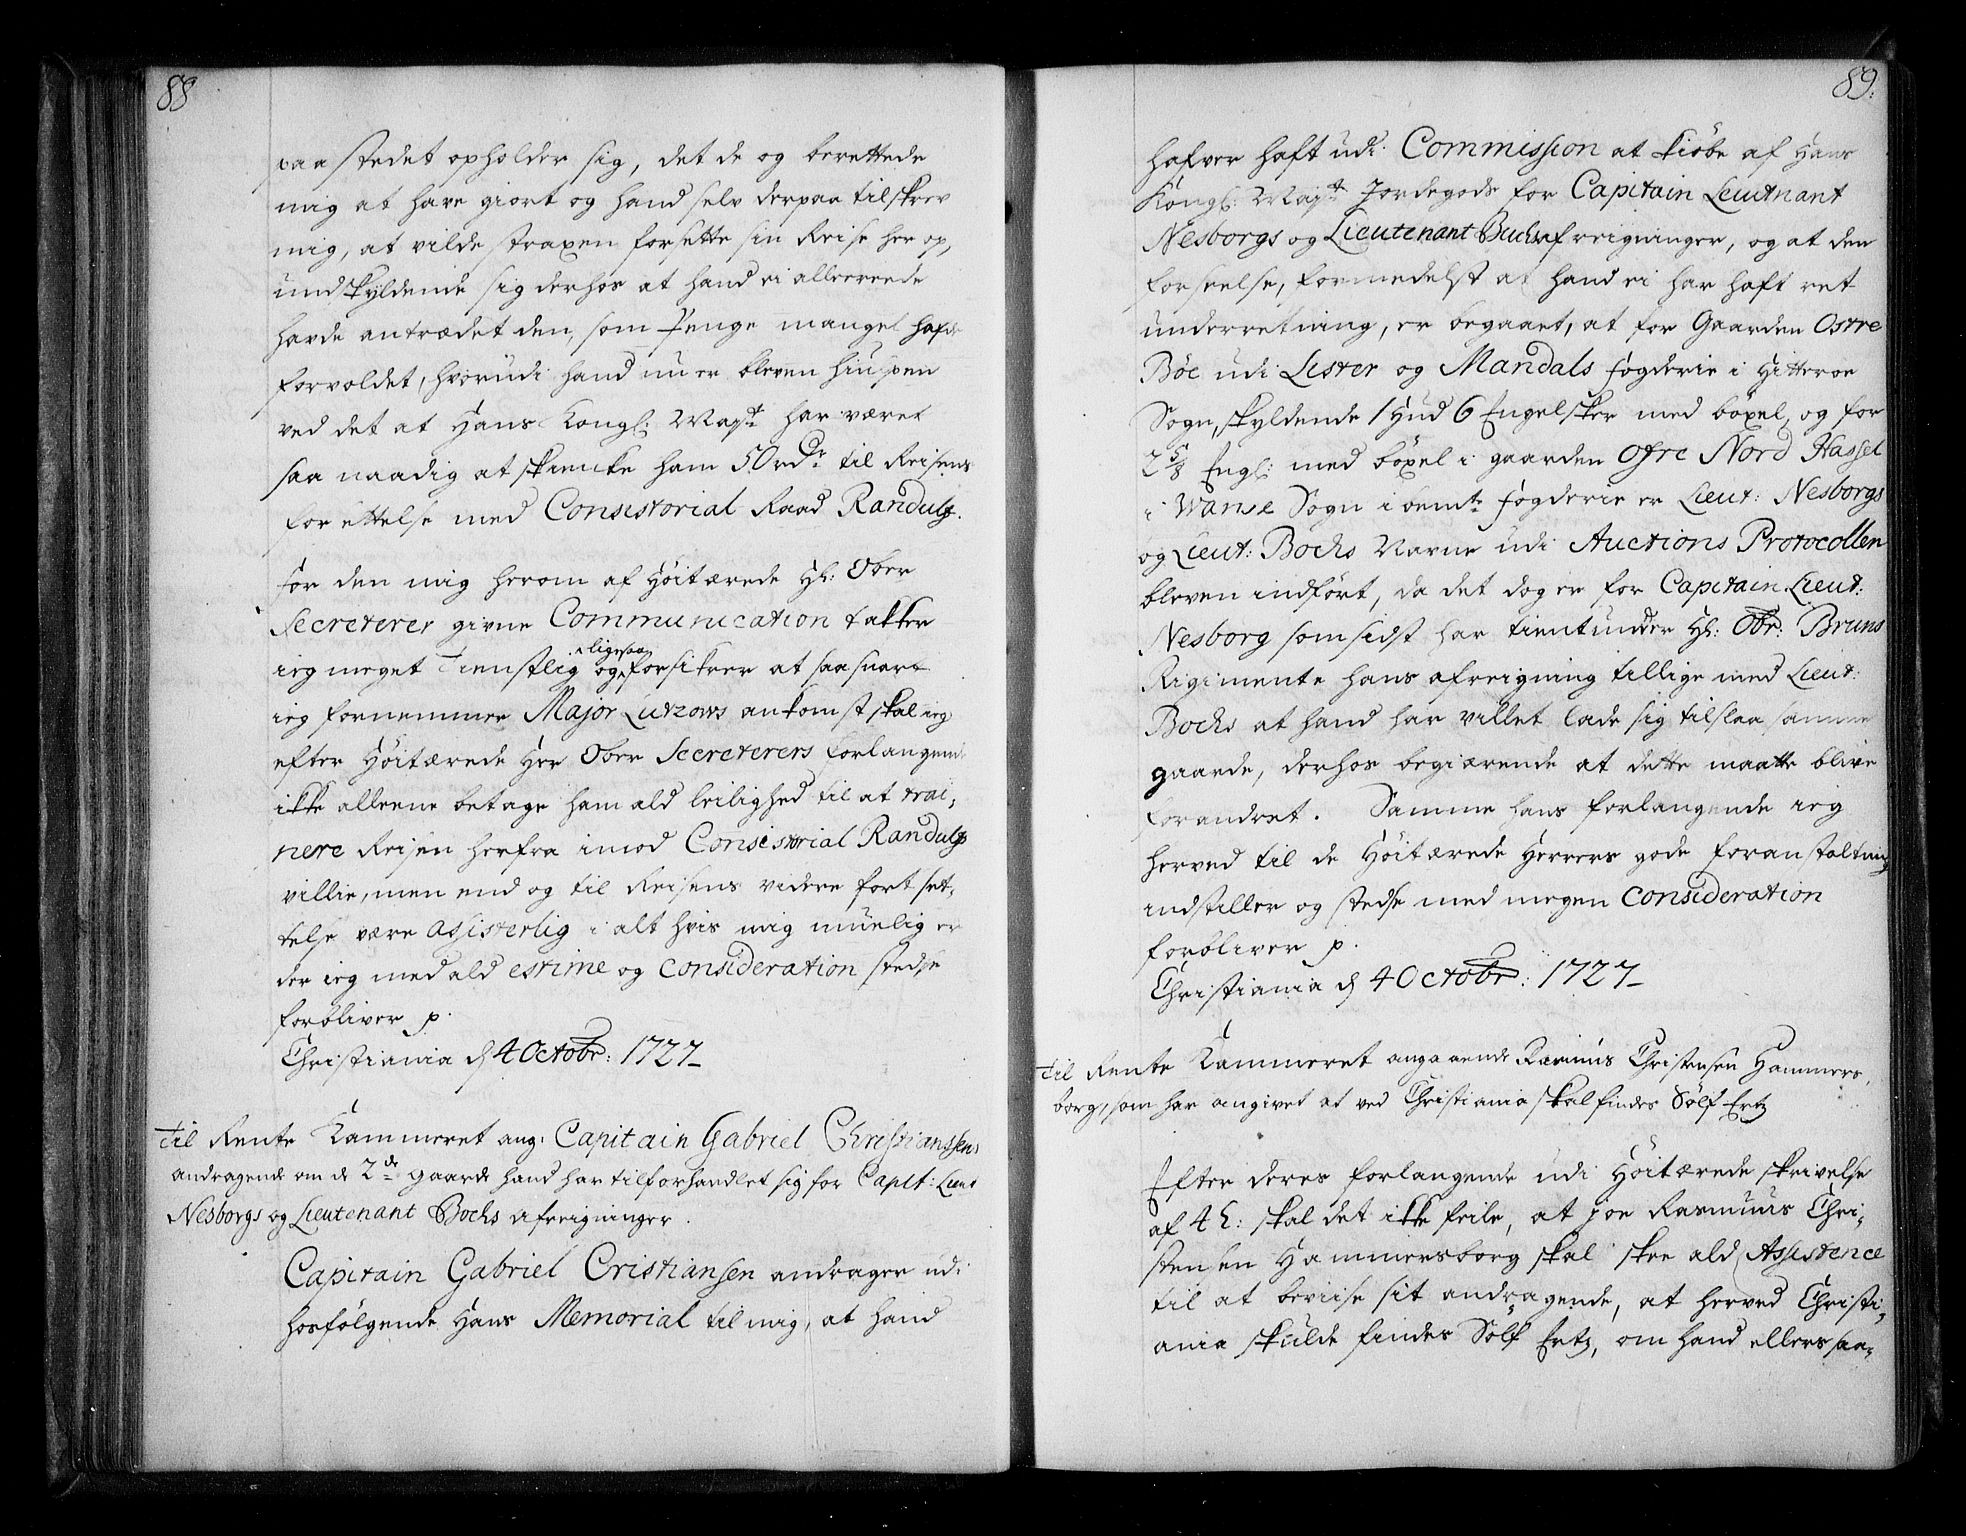 88
paa stedet opholder sig, det de og berettede
mig at have giort og hand selv derpaa tilskrev
mig, at vilde straxen forsette sin Reise her op,
undskyldende sig derhos at hand ei allerreede
havde antrædet den, som Penge mangel hafde
forvoldet, hvorudi hand nu er bleven hiulpen
ved det at Hans Kongl: Mayt har været
saa naadig at skiencke ham 50 rdr til Reisens
forettelse med Consistorial Raad Randulf.
For den mig herom af Høitærede Hl: Ober
Secreterer givne Communication takker
ieg meget tienstlig og ligesaa forsikrer at saasnart
ieg fornemmer Major Lutzows ankomst skal ieg
efter Høitærede Her Ober Secreterers forlangend
ikke alleene betage ham ald leilighed til at trai,
nere Reisen herfra imod Consistorial Randulfs
villie, men end og til Reisens videre fortset,
telse være assisterlig i alt hvis mig muelig er
der ieg med ald estime og consideration stedse
forbliver p.
Christiania d 4 Octobr: 1727
Til Rente Kammeret ang: Capitain Gabriel Christianssens
andragende om de 2de gaarde hand har tilforhandlet sig for Capit: Lieut
Nesborgs og Lieutenant Bochs afreigninger.
Capitain Gabriel Cristiansen andrager udi
hosfølgende Hans Memorial til mig, at hand
89:
hafver haft udi Commission at kiøbe af Hans
Kongl: Mayt Jordegods for Capitain Lieutnant
Nesborgs og Lieutenant Buchs afreigninger, og at den
forseelse, formedelst at hand ei har haft ret
underretning, er begaaet, at for Gaarden Ostre
Böe udi Lister og Mandals fogderie i Hitteroe
Sogn, skyldende 1 Hud 6 Engelsker med böxel, og for
2 5/8 Engl: med böxel i gaarden Ofre Nord Hassel
i Wanse Sogn i bemte fogderie er Lieut: Nesborgs
og Lieut: Bochs Navne udi Auctions Protocollen
bleven indfört, da det dog er for Capitain Lieut:
Nesborg som sidst har tient under Hl: Obr: Bruns
Rigimente hans afreigning tillige med Lieut:
Bochs at hand har villet lade sig tilslaa samme
gaarde, derhos begiærende at dette maatte blive
forandret. Samme hans forlangende ieg
herved til de Høitærede Herrers gode foranstaltning
indstiller og stedse med megen consideration
forbliver p.
Christiania d 4 Octobr: 1727
Til Rente Kammeret angaaende Rasmus Christensen Hammers,
borg, som har angivet at ved Christiania skal findes Sölf Ertz
Efter deres forlangende udi Høitærede skrivelse
af 4 h: skal det ikke feile, at joe Rasmuus Chri,
stensen Hammersborg skal skee ald Assistence
til at beviise sit andragende, at herved Christi,
ania skulde findes Sölf Ertz, om hand ellers saa,